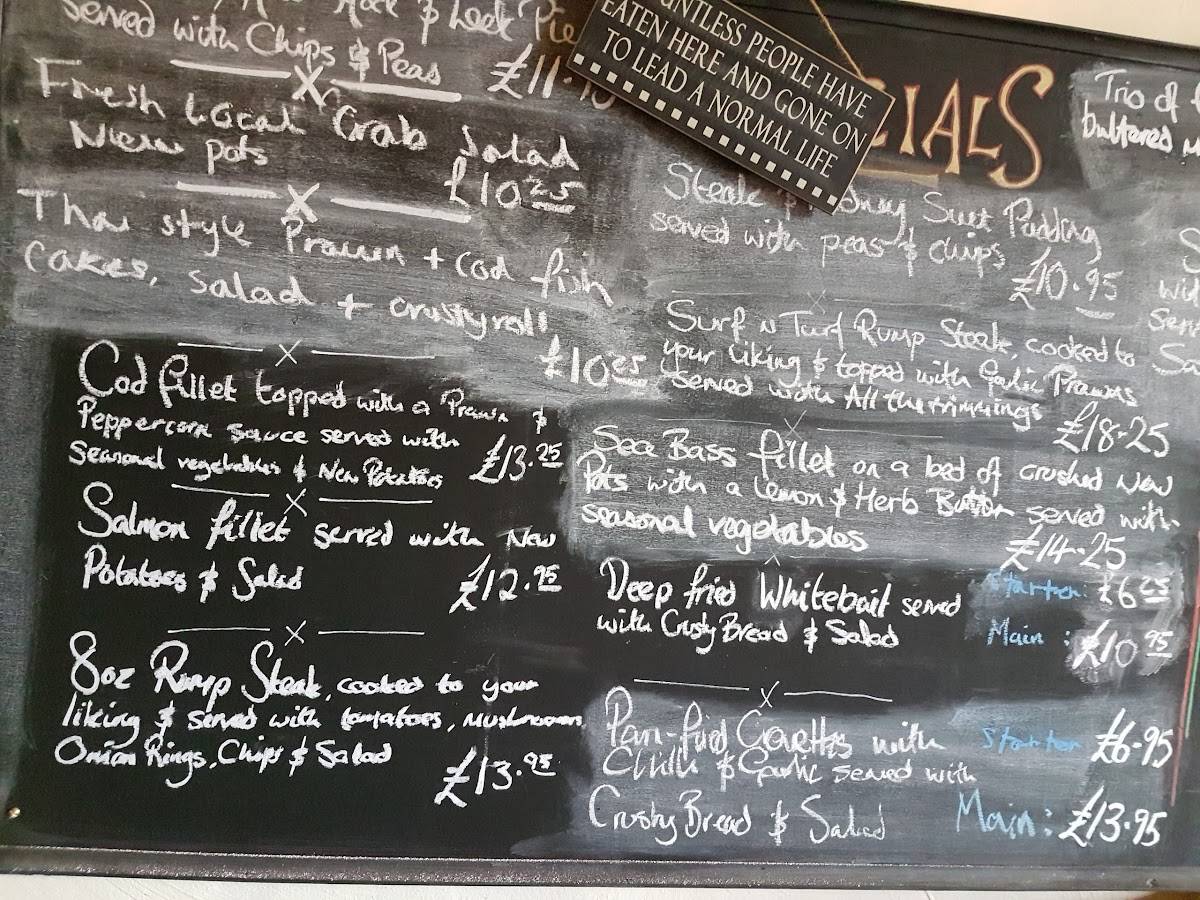 & Leek Pie
served with Chips & Peas £11.
Fresh Local Crab Salad
New pots £10.25
Thai style Prawn + Cod fish
cakes, salad + crusty roll
£10.25
Cod fillet topped with a Prawn &
Peppercorn sauce served with
seasonal vegetables & New Potatoes £13.25
Salmon fillet served with New
Potatoes & Salad £12.95
8oz Rump Steak, cooked to your
liking & served with tomatoes, mushrooms,
Onion Rings, Chips & Salad
£13.95
UNTLESS PEOPLE HAVE
EATEN HERE AND GONE ON
TO LEAD A NORMAL LIFE
CIALS
Steak & dney Suet Pudding
served with peas & chips
£10.95
Surf n Turf Rump Steak, cooked to
your liking & topped with Garlic Prawns
served with All the trimmings
£18.25
Sea Bass fillet on a bed of crushed New
Pots with a Lemon & Herb Butter served with
seasonal vegetables
£14.25
Deep fried Whitebait served Starter: £6.25
with Crusty Bread & Salad Main: £10.95
Pan-fried Crevettes with Starter £6.95
Chilli & Garlic served with
Crusty Bread & Salad Main: £13.95
Trio of
buttered